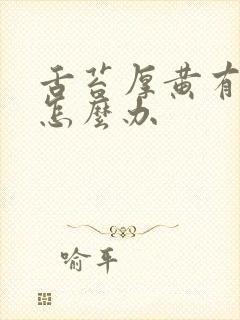 舌苔厚黄有
怎麼办
喻平